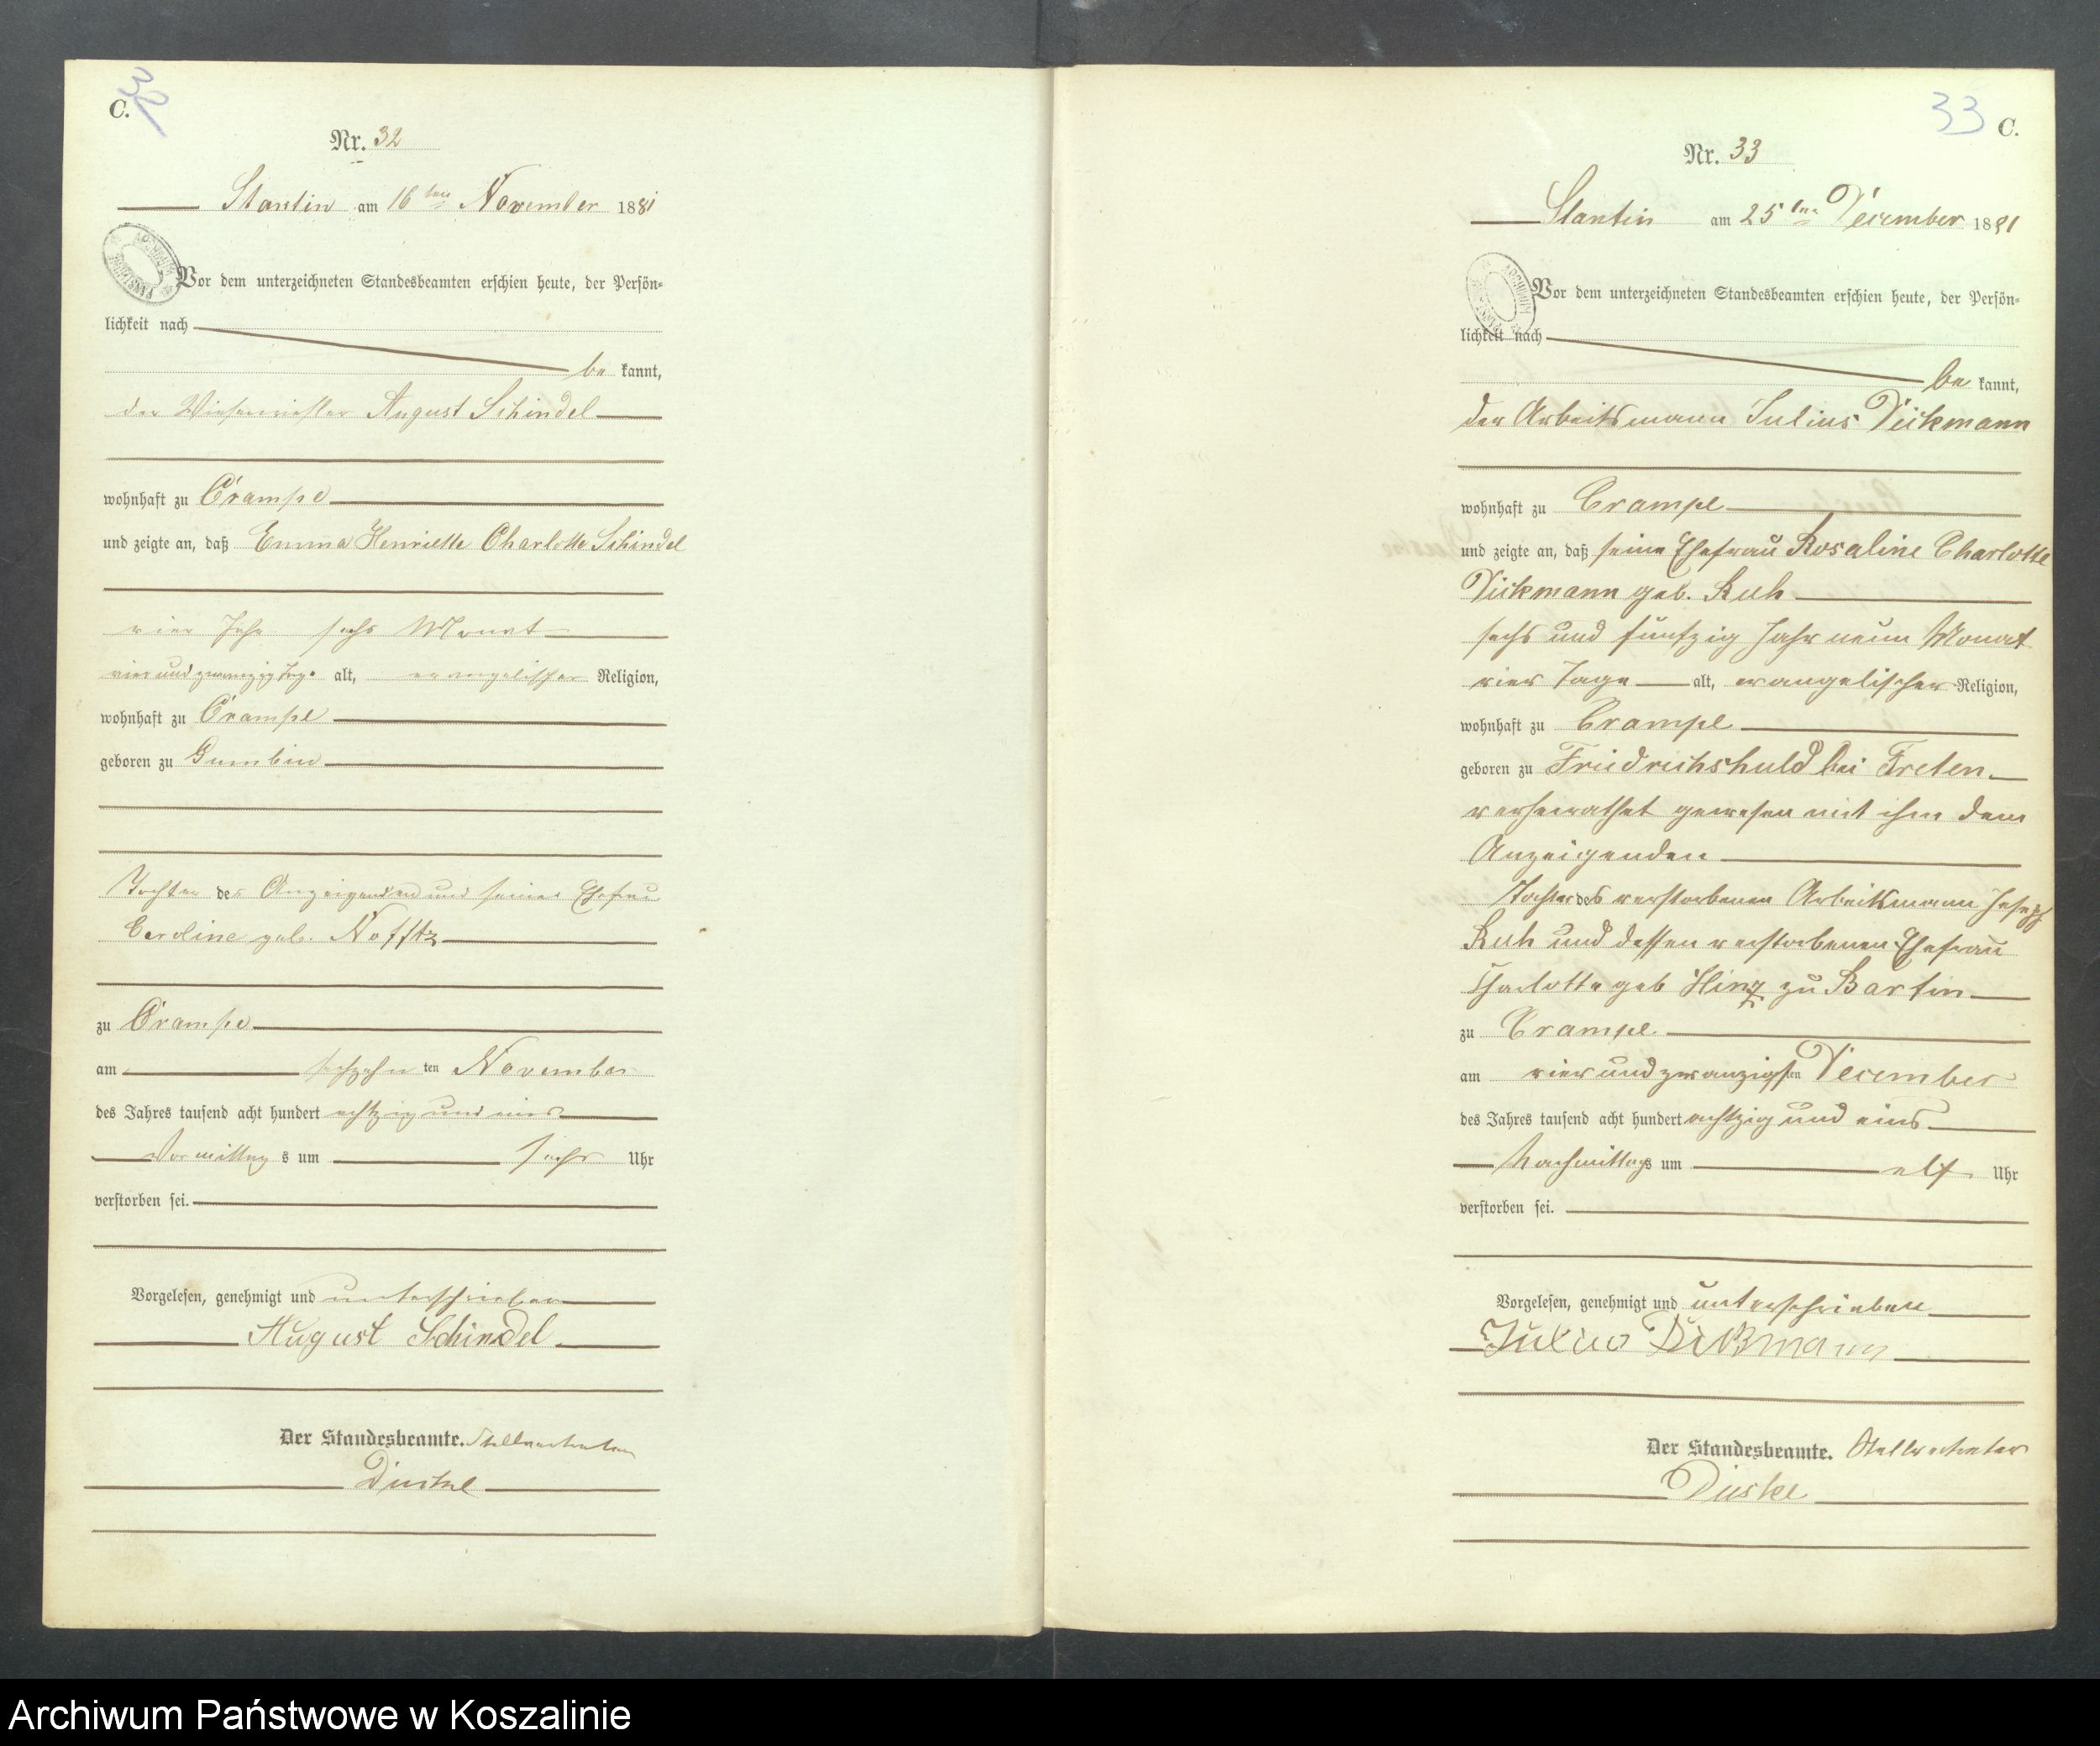 C.
32
Nr. 32
Stantin am 16ten November 1881
Vor dem unterzeichneten Standesbeamten erschien heute, der Persön-
lichkeit nach
be kannt,
der Wiesenmeister August Schindel
wohnhaft zu Crampe
und zeigte an, daß Emma Henriette Charlotte Schindel
vier Jahr sechs Monat
vier und zwanzig Tage alt, evangelischer Religion,
wohnhaft zu Crampe
geboren zu Gumbin
Tochter des Anzeigenden und seiner Ehefrau
Caroline geb. Nofftz
zu Crampe
am sechzehn ten November
des Jahres tausend acht hundert achtzig und eins
Vormittag s um sechs Uhr
verstorben sei.
Vorgelesen, genehmigt und unterschrieben
August Schindel
Der Standesbeamte. Stellvertreter
Dieske
33 C.
Nr. 33
Stantin am 25ten December 1881
Vor dem unterzeichneten Standesbeamten erschien heute, der Persön-
lichkeit nach
be kannt,
der Arbeitsmann Julius Dickmann
wohnhaft zu Crampe
und zeigte an, daß seine Ehefrau Rosaline Charlotte
Dickmann geb. Kuh
sechs und fünfzig Jahr neun Monat
vier Tage alt, evangelischer Religion,
wohnhaft zu Crampe
geboren zu Friedrichshuld bei Treten
verheirathet gewesen mit ihm dem
Anzeigenden
Tochter des verstorbenen Arbeitsmann Joseph
Kuh und dessen verstorbenen Ehefrau
Charlotte geb Hinz zu Bartin
zu Crampe
am vier und zwanzigsten December
des Jahres tausend acht hundert achtzig und eins
Nachmittags um elf Uhr
verstorben sei.
Vorgelesen, genehmigt und unterschrieben
Julius Dickmann
Der Standesbeamte. Stellvertreter
Dieske
Archiwum Państwowe w Koszalinie